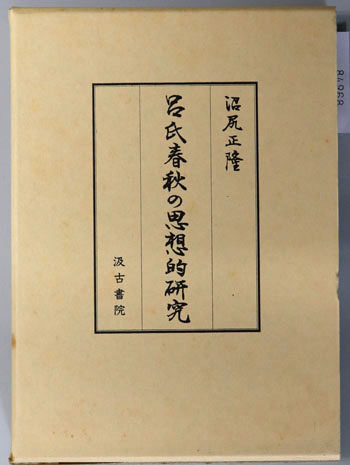 沼尻正隆
呂氏春秋の思想的研究
汲古書院